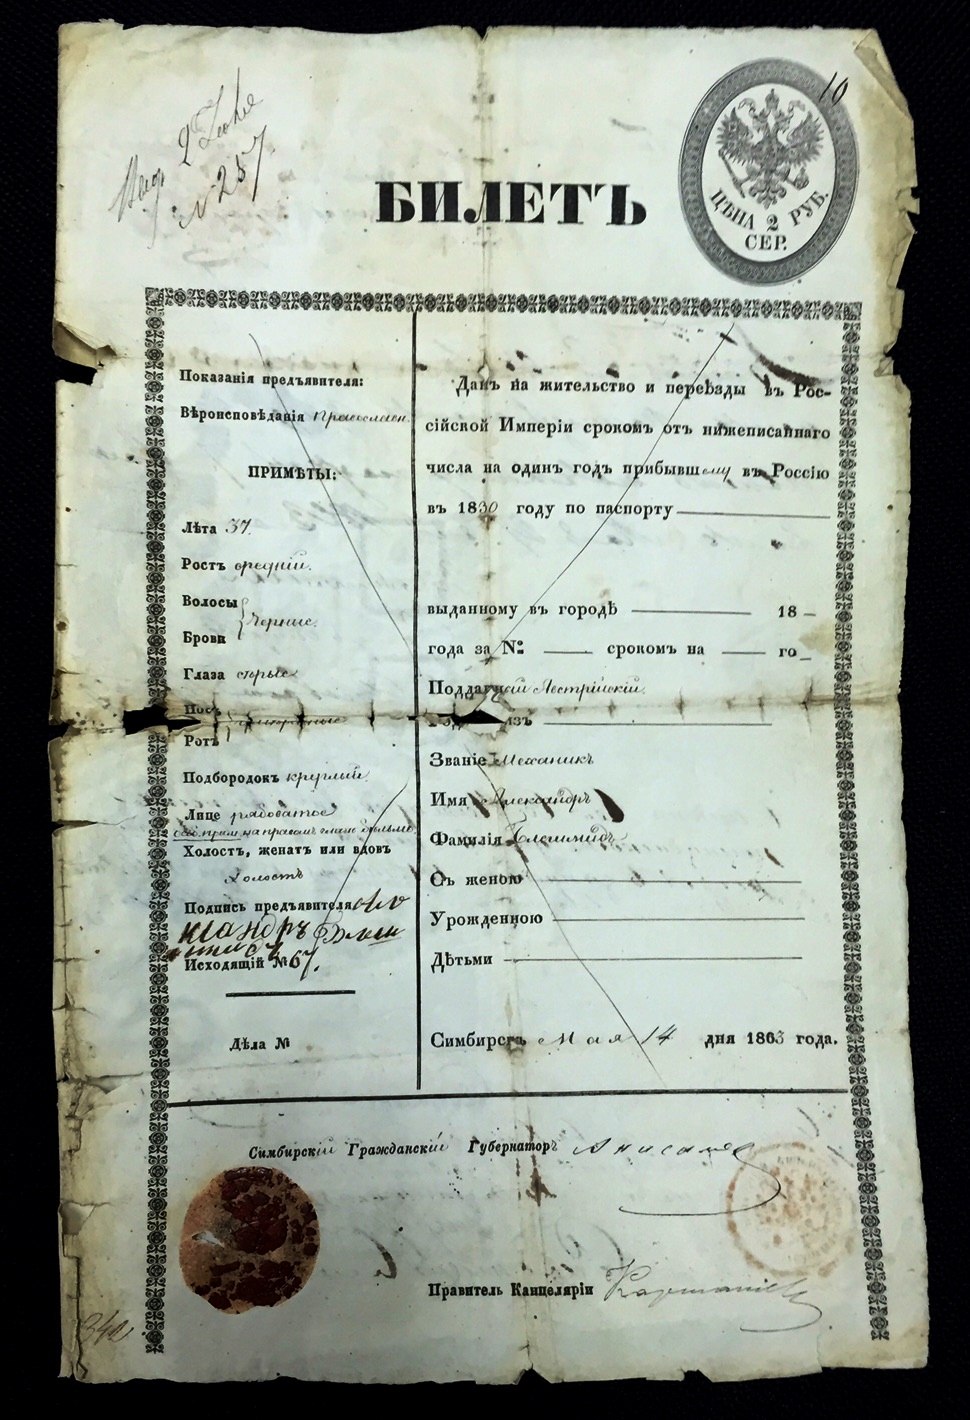 10
№ 257
БИЛЕТЪ
ЦѢНА 2 РУБ.
СЕР.
Показанія предъявителя:
Вѣроисповѣданія Православн.
ПРИМѢТЫ:
Лѣта 37.
Ростъ средній.
Волосы
Брови
Черные.
Глаза сѣрые
Носъ
Ротъ
Подбородокъ круглый.
Лице рябоватое
Холостъ, женатъ или вдовъ
Холостъ
Подпись предъявителя Але
ксандръ
Исходящій № 67.
Дѣла №
Данъ на жительство и переѣзды въ Рос-
сійской Имперіи срокомъ отъ нижеписаннаго
числа на одинъ годъ прибывшему въ Россію
въ 1830 году по паспорту
выданному въ городѣ 18
года за № срокомъ на го
Подданный Австрійскій.
Званіе Механикъ
Имя Александръ
Фамилія
Съ женою
Урожденною
Дѣтьми
Симбирскъ Мая 14 дня 1863 года.
Симбирскій Гражданскій Губернаторъ Анисимов
Правитель Канцеляріи